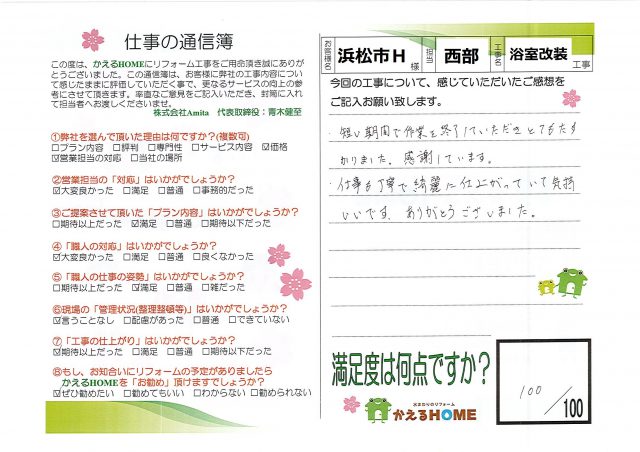 仕事の通信簿
この度は、かえるHOMEにリフォーム工事をご用命頂き誠にありが
とうございました。この通信簿は、お客様に弊社の工事内容につい
て感じたままに評価していただく事で、更なるサービスの向上の参
考にさせて頂きます。率直なご意見をご記入いただき、封筒に入れ
て担当者へお渡しくださいませ。
株式会社Amita 代表取締役：青木健至
①弊社を選んで頂いた理由は何ですか？(複数可)
□プラン内容 □評判 □専門性 □サービス内容 ☑価格
☑営業担当の対応 □当社の場所
②営業担当の「対応」はいかがでしょうか？
☑大変良かった □満足 □普通 □事務的だった
③ご提案させて頂いた「プラン内容」はいかがでしょうか？
□期待以上だった ☑満足 □普通 □期待以下だった
④「職人の対応」はいかがでしょうか？
☑大変良かった □満足 □普通 □良くなかった
⑤「職人の仕事の姿勢」はいかがでしょうか？
□期待以上だった ☑満足 □普通 □雑だった
⑥現場の「管理状況(整理整頓等)」はいかがでしょうか？
☑言うことなし □配慮があった □普通 □できていない
⑦「工事の仕上がり」はいかがでしょうか？
☑期待以上だった □満足 □普通 □期待以下だった
⑧もし、お知合いにリフォームの予定がありましたら
かえるHOMEを「お勧め」頂けますでしょうか？
☑ぜひ勧めたい □勧めてもいい □わからない □勧められない
お客様名 浜松市H 様 担当 西部 工事名 浴室改装 工事
今回の工事について、感じていただいたご感想を
ご記入お願い致します。
・短い期間で作業を終了していただきとてもたす
かりました。感謝しています。
・仕事も丁寧で綺麗に仕上がっていて気持
いいです。ありがとうございました。
満足度は何点ですか？
100/100
水まわりのリフォーム
かえるHOME